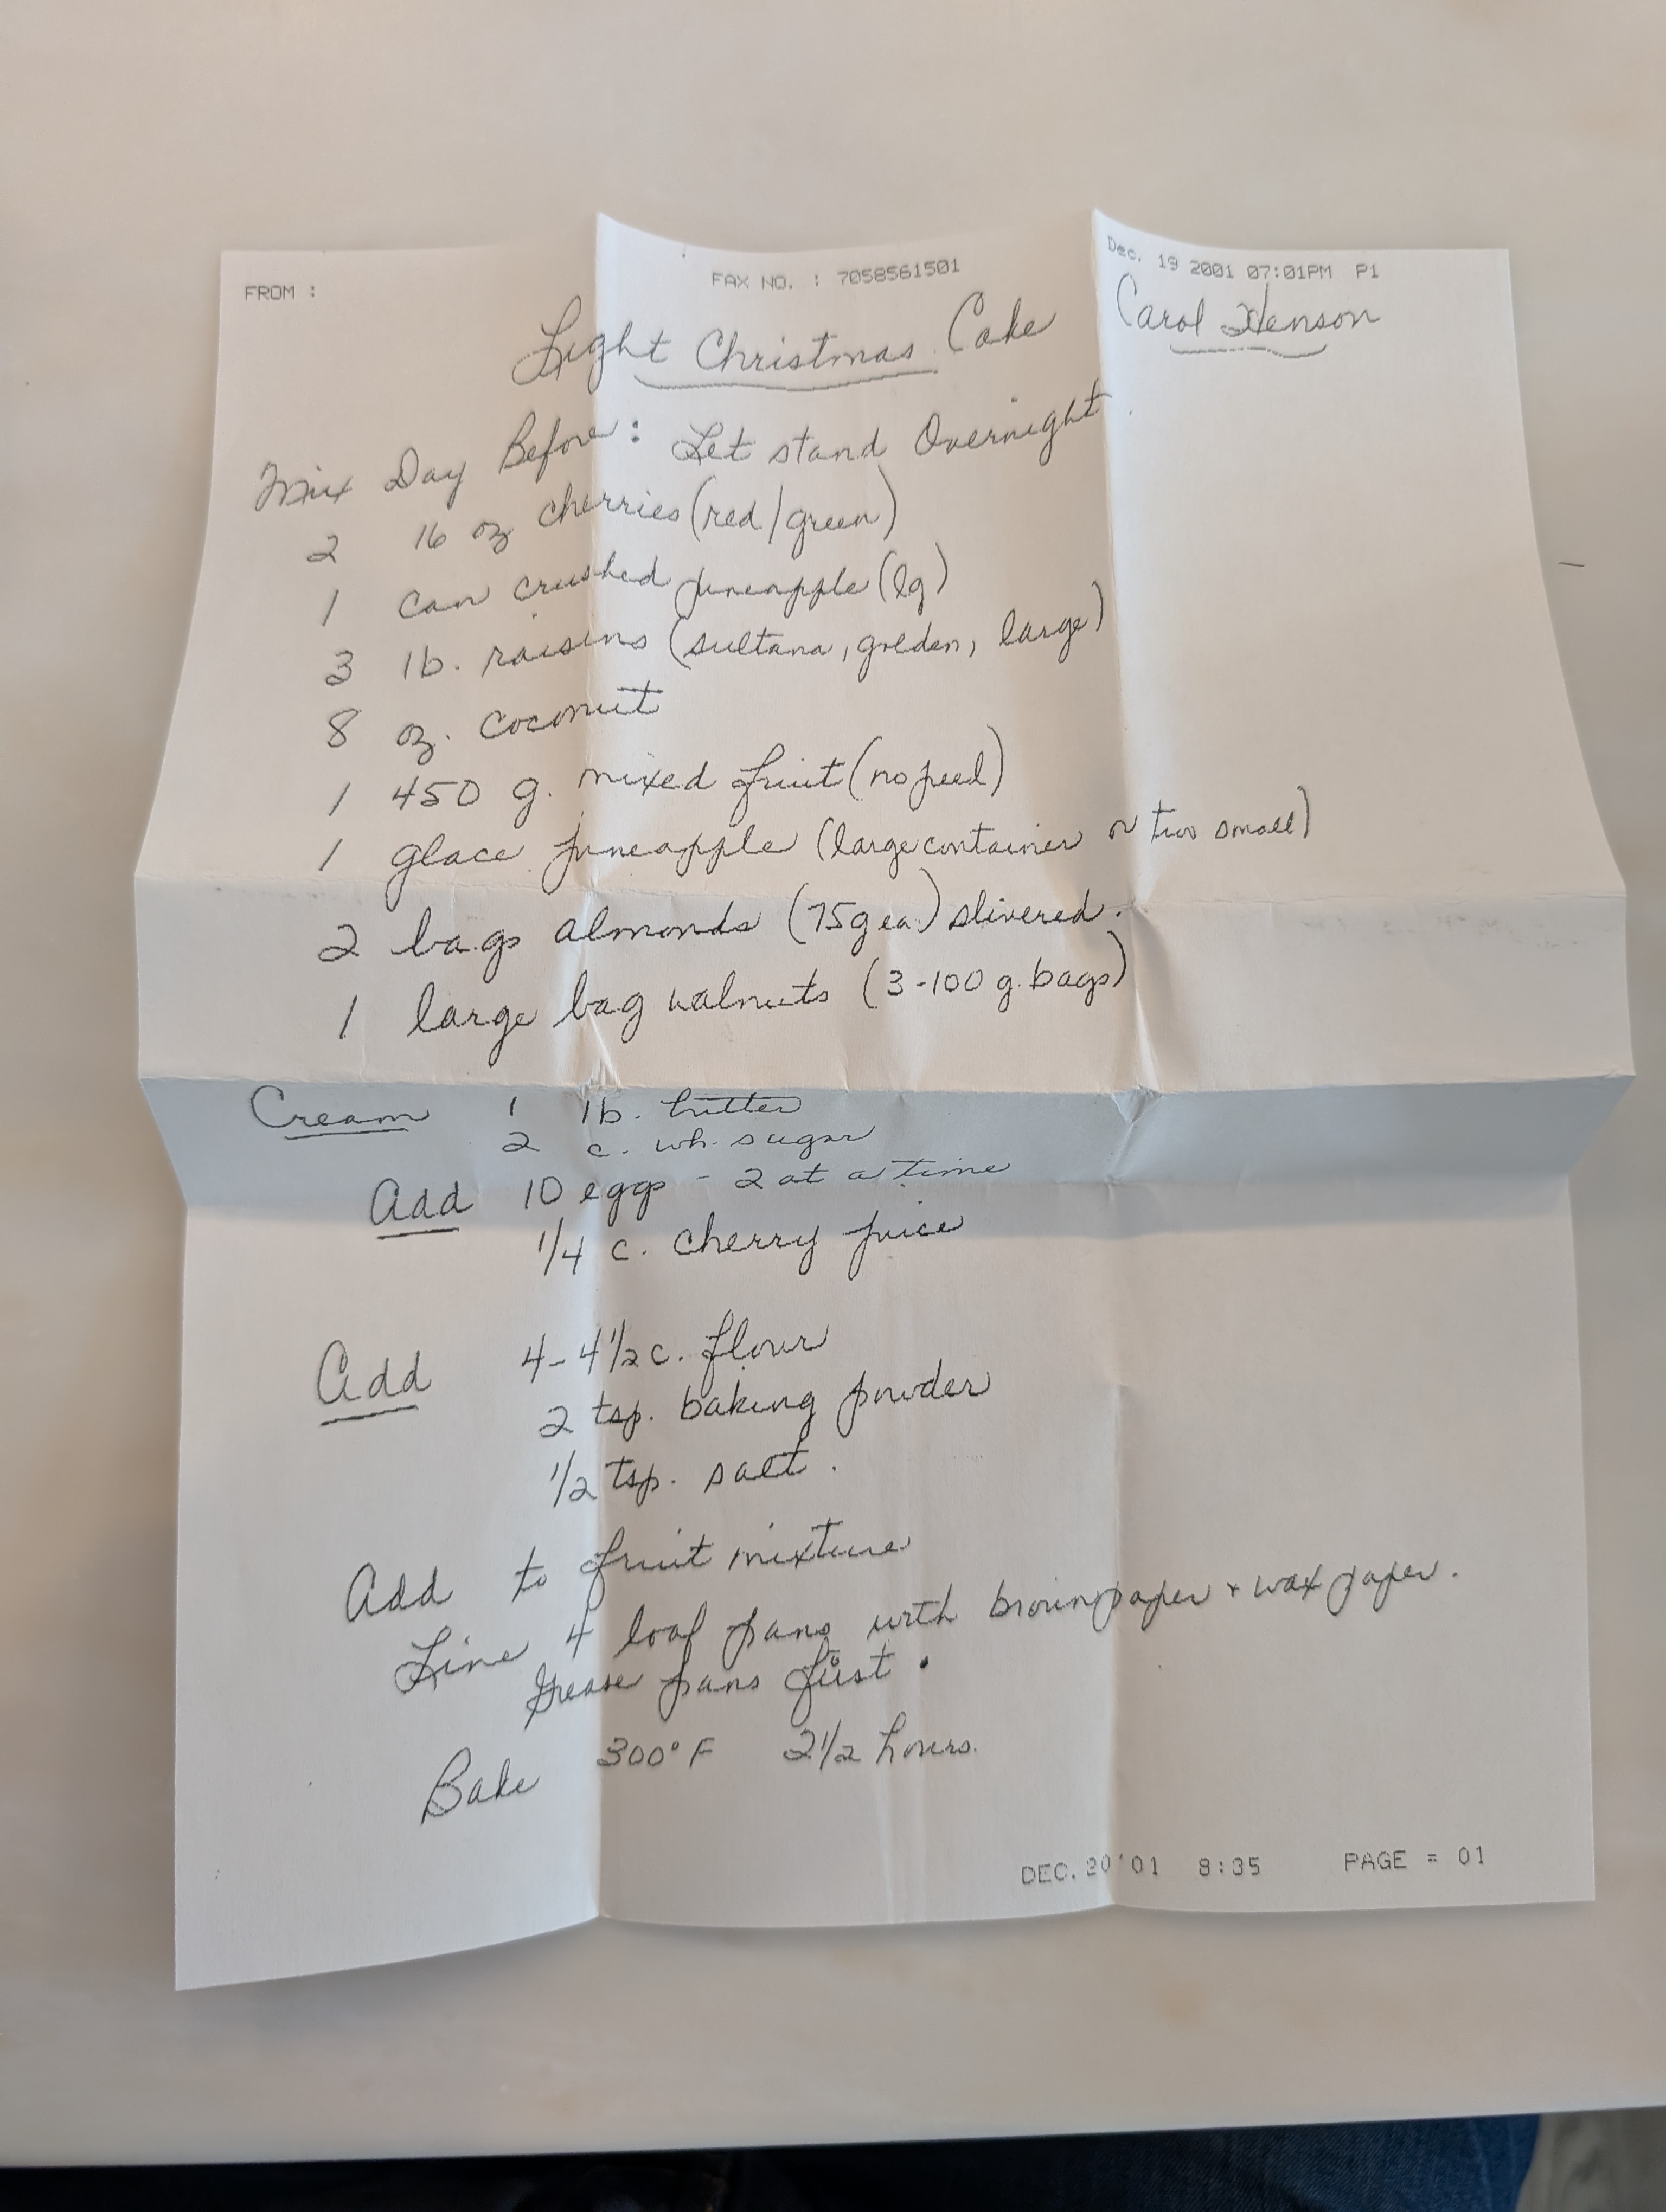 FROM :
FAX NO. : 7058561501
Dec. 19 2001 07:01PM P1
Light Christmas Cake
Carol Henson
Mix Day Before: Let stand Overnight.
2 16 oz cherries (red/green)
1 can crushed pineapple (lg)
3 lb. raisins (sultana, golden, large)
8 oz. coconut
1 450 g. mixed fruit (no peed)
1 glace pineapple (large container or two small)
2 bags almonds (75g ea.) slivered.
1 large bag walnuts (3-100 g. bags)
Cream 1 lb. butter
2 c. wh. sugar
Add 10 eggs - 2 at a time
1/4 c. cherry juice
Add 4-4 1/2 c. flour
2 tsp. baking powder
1/2 tsp. salt.
Add to fruit mixture
Line 4 loaf pans with brown paper + wax paper.
Grease pans first.
Bake 300° F 2 1/2 hours.
DEC.20'01 8:35 PAGE = 01